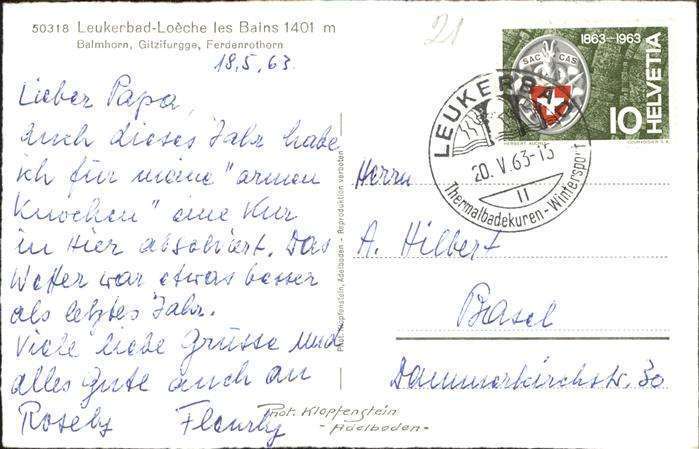 50318 Leukerbad-Loèche les Bains 1401 m
Balmhorn, Gitzifurgge, Ferdenrothorn
21
18.5.63
Lieber Papa,
Auch dieses Jahr habe
ich für meine "armen
Knochen" eine Kur
in Hier absolviert. Das
Wetter war etwas besser
als letztes Jahr.
Viele liebe Grüsse und
alles Gute auch an
Rosely Fleurly
Phot. Klopfenstein
- Adelboden -
Phot. Klopfenstein, Adelboden - Reproduktion verboten
1863-1963
SAC CAS
HELVETIA
10
COURVOISIER S.A.
LEUKERBAD
20.V.63-15
II
Thermalbadekuren-Wintersport
Herrn
A. Hilbert
Basel
Dammerkirchstr. 30